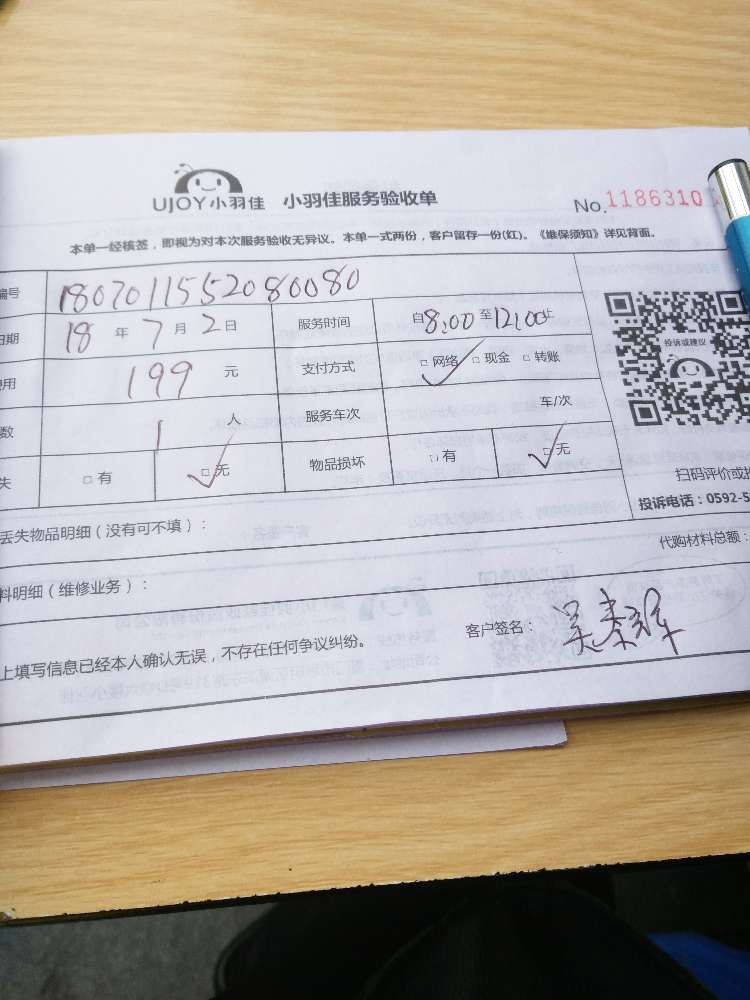 UJOY小羽佳 小羽佳服务验收单 No.1186310
本单一经核签，即视为对本次服务验收无异议。本单一式两份，客户留存一份(红)。《维保须知》详见背面。
编号 1807011552080080
日期 18 年 7 月 2 日 服务时间 自8:00至12:00止
费用 199 元 支付方式 □ 网络 □ 现金 □ 转账
数 1 人 服务车次 车/次
失 □ 有 □ 无 物品损坏 □ 有 □ 无
投诉或建议
扫码评价或投
投诉电话：0592-5
丢失物品明细（没有可不填）：
代购材料总额：
料明细（维修业务）：
上填写信息已经本人确认无误，不存在任何争议纠纷。
客户签名：吴秦